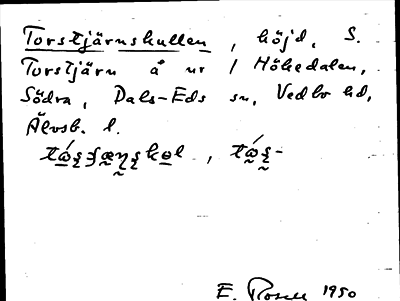 Torstjärnskullen, höjd, S.
Torstjärn å nr 1 Höhedalen,
Södra, Dals-Eds sn, Vedbo hd,
Älvsb. l.
E. Rosell 1950